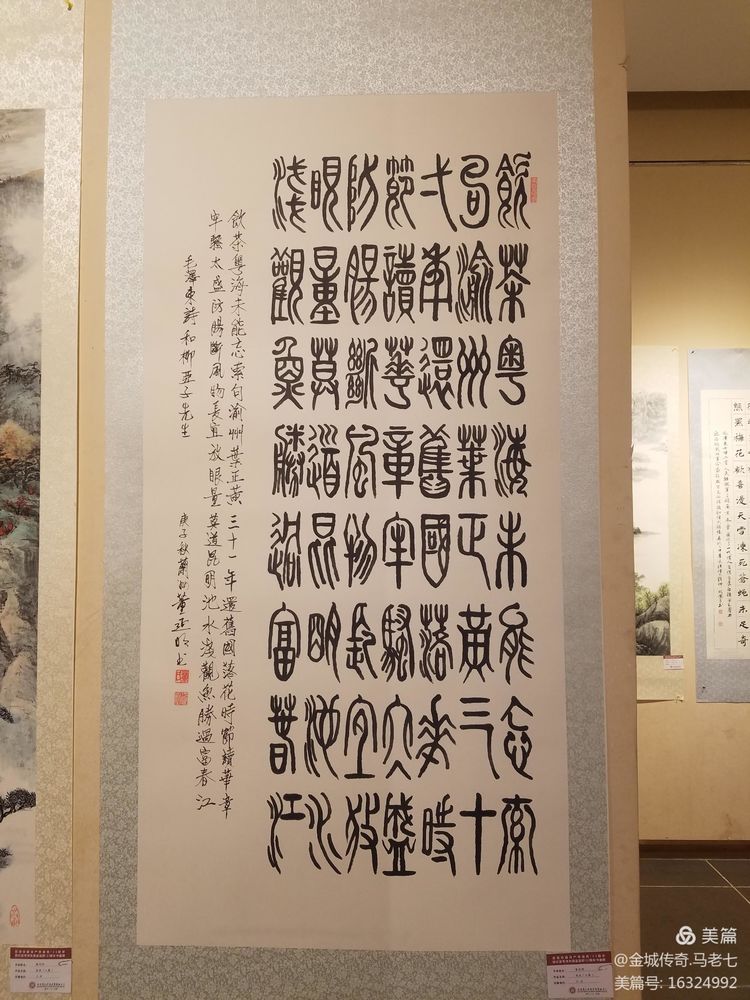 飲茶粵海未能忘索
句渝州葉正黃三十
弌年還舊國落花時
節讀華章牢騷太盛
防腸斷風物長宜放
眼量莫道昆明池水
淺觀魚勝過富春江
飲茶粵海未能忘索句渝州葉正黃三十一年還舊國落花時節讀華章
牢騷太盛防腸斷風物長宜放眼量莫道昆明池水淺觀魚勝過富春江
毛澤東詩和柳亞子先生
庚子秋蘭董書
熊羆梅花歡喜漫天雪凍死蒼蠅未足奇
美篇
@金城传奇.马老七
美篇号: 16324992